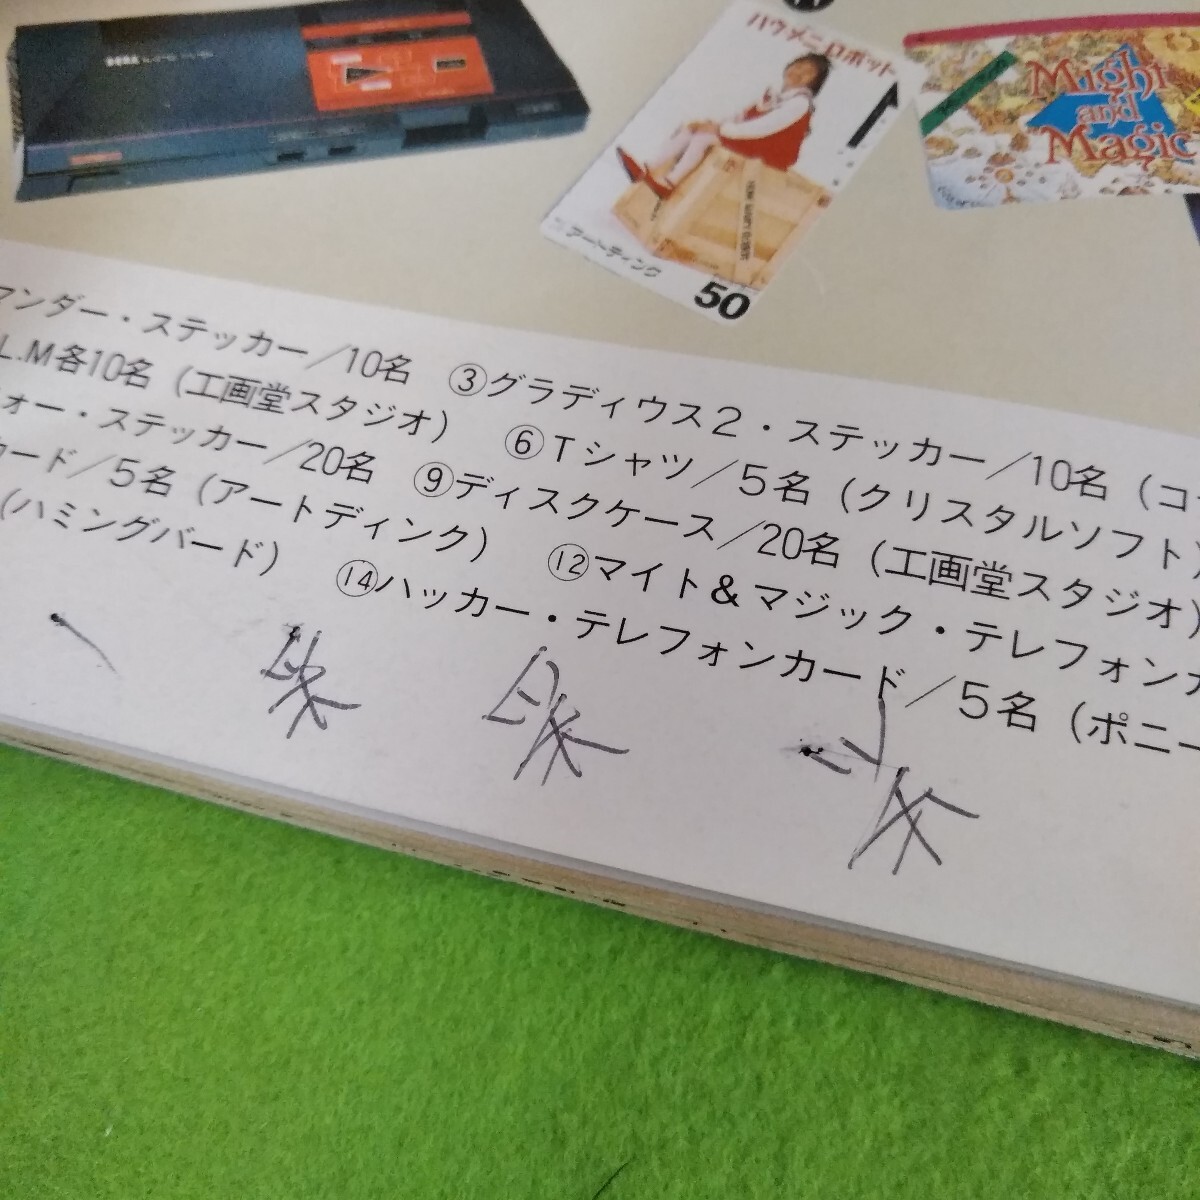 SEGA
ハウメニロボット
アートディンク
50
Might
and
Magic
マンダー・ステッカー／10名 ③グラディウス2・ステッカー／10名（コ
L.M各10名（工画堂スタジオ） ⑥Tシャツ／5名（クリスタルソフト）
ォー・ステッカー／20名 ⑨ディスクケース／20名（工画堂スタジオ）
カード／5名（アートディンク） ⑫マイト&マジック・テレフォンカ
（ハミングバード） ⑭ハッカー・テレフォンカード／5名（ポニー